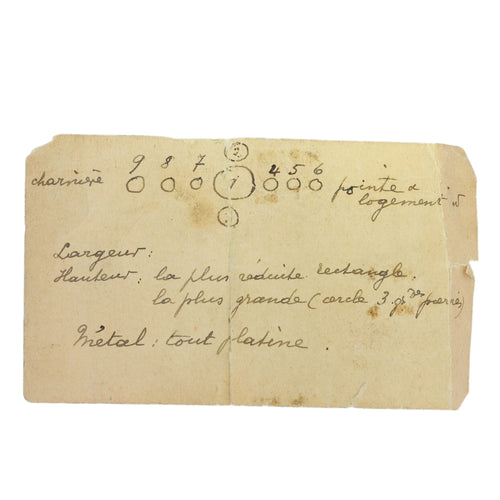 2
9 8 7 1 4 5 6
charnière pointe & logement
3
Largeur:
Hauteur: la plus réduite rectangle.
la plus grande (cercle 3 gr
Métal: tout platine.